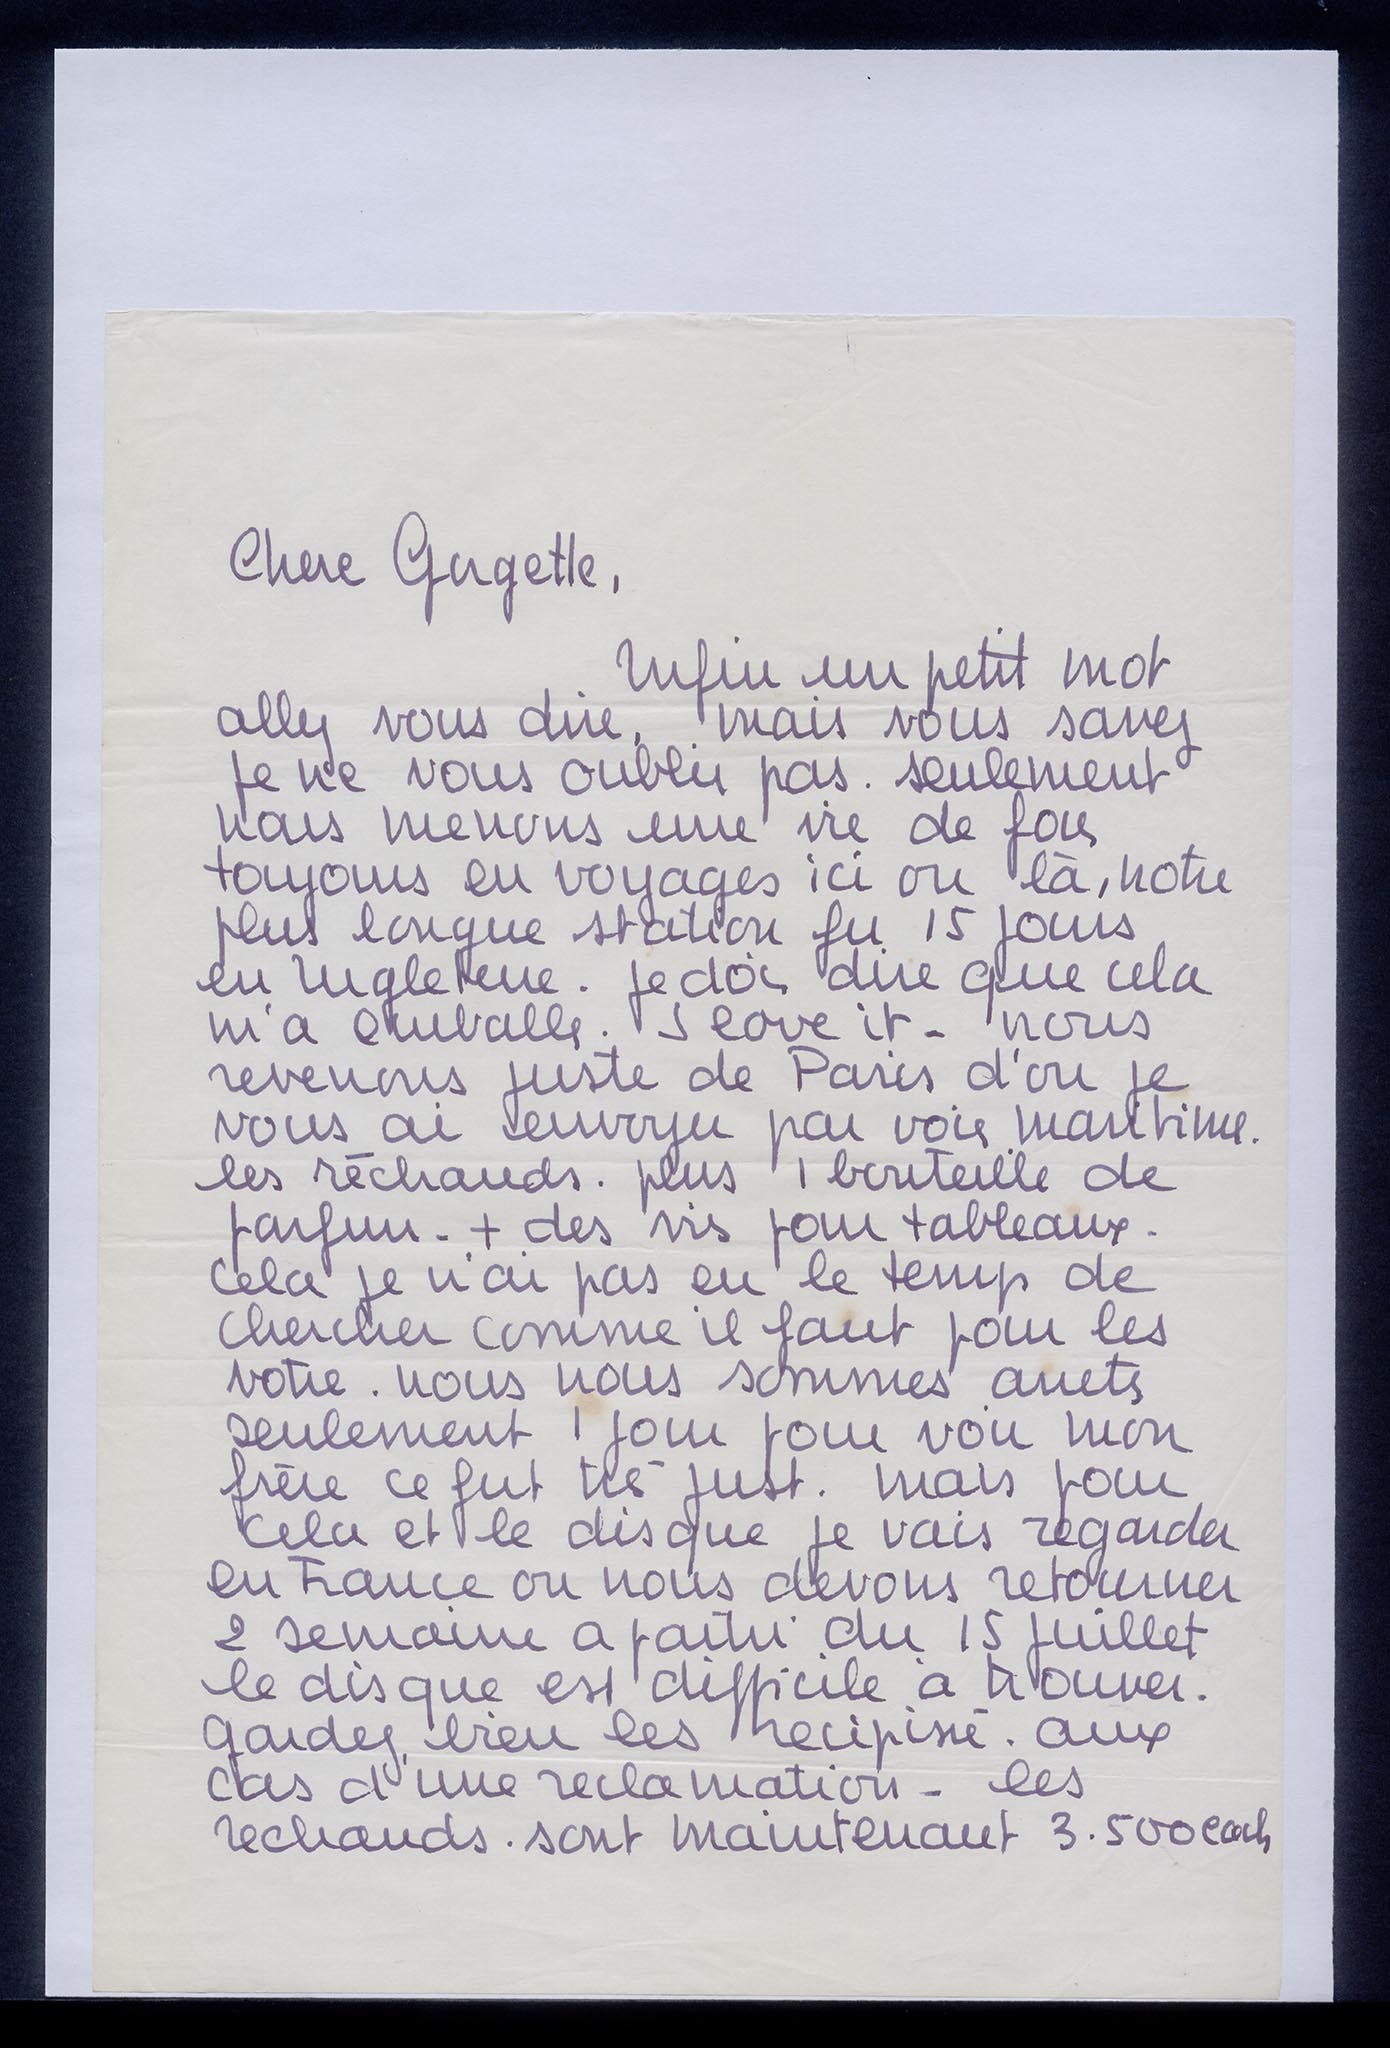 Chere Gorgette,
Enfin un petit mot
allez vous dire, mais vous savez
je ne vous oublie pas. seulement
nous menons une vie de fou
toujours en voyages ici ou là, notre
plus longue station fu 15 jours
en Angleterre. je dois dire que cela
m'a emballé. I love it - nous
revenons juste de Paris d'ou je
vous ai envoyer par voie maritime.
les réchauds. plus 1 bouteille de
parfum - + des vis pour tableaux.
Cela je n'ai pas eu le temp de
chercher comme il faut pour les
votre. nous nous sommes arretés
seulement 1 jour pour voir mon
frère ce fut très just. mais pour
cela et le disque je vais regarder
en France ou nous devons retourner
2 semaine a partir du 15 juillet
le disque est difficile à trouver.
gardez bien les recipissé. aux
cas d'une reclamation - les
rechauds. sont maintenant 3.500 each